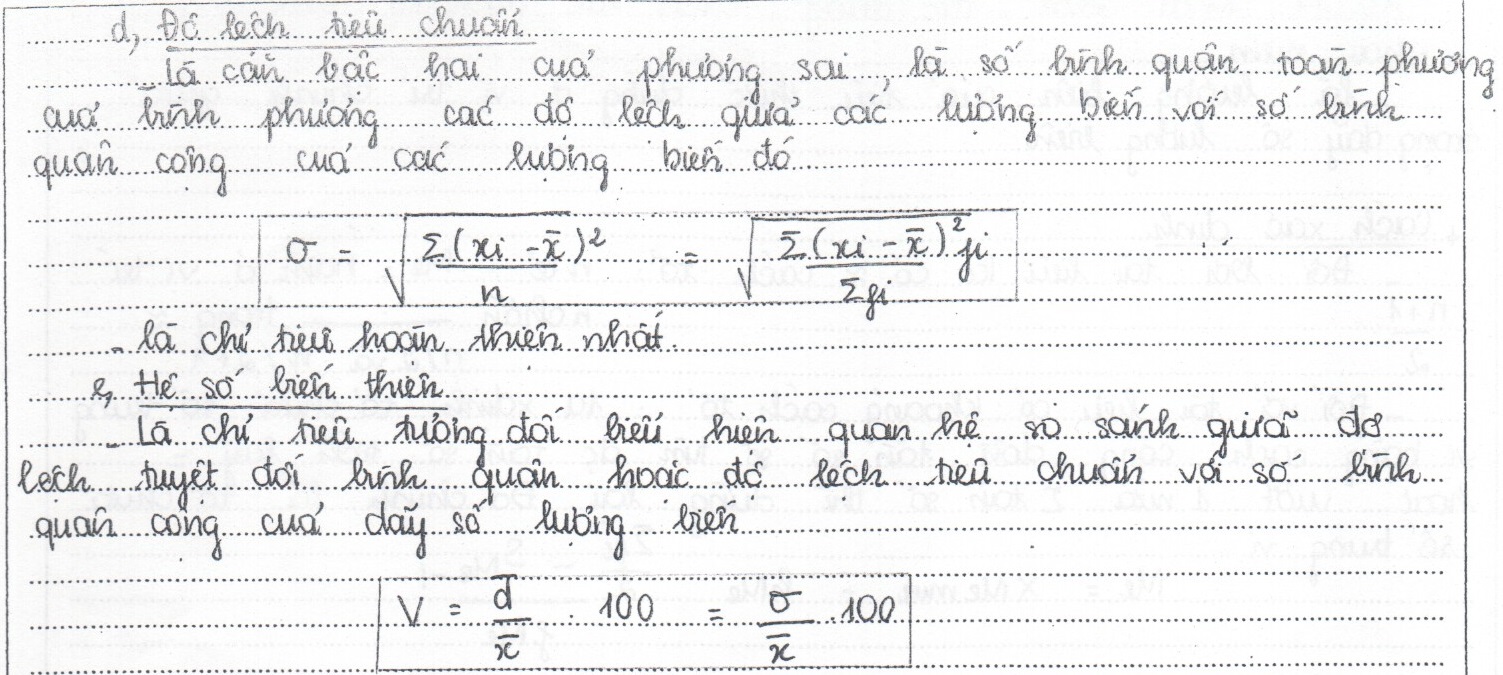 d, Độ lệch tiêu chuẩn
Là căn bậc hai của phương sai, là số bình quân toàn phương
của bình phương các độ lệch giữa các lượng biến với số bình
quân cộng của các lượng biến đó.
σ = √(Σ(xi - x̄)² / n) = √(Σ(xi - x̄)² fi / Σfi)
- là chỉ tiêu hoàn thiện nhất.
e, Hệ số biến thiên
- Là chỉ tiêu tương đối biểu hiện quan hệ so sánh giữa độ
lệch tuyệt đối bình quân hoặc độ lệch tiêu chuẩn với số bình
quân cộng của dãy số lượng biến
V = d̄ / x̄ . 100 = σ / x̄ . 100